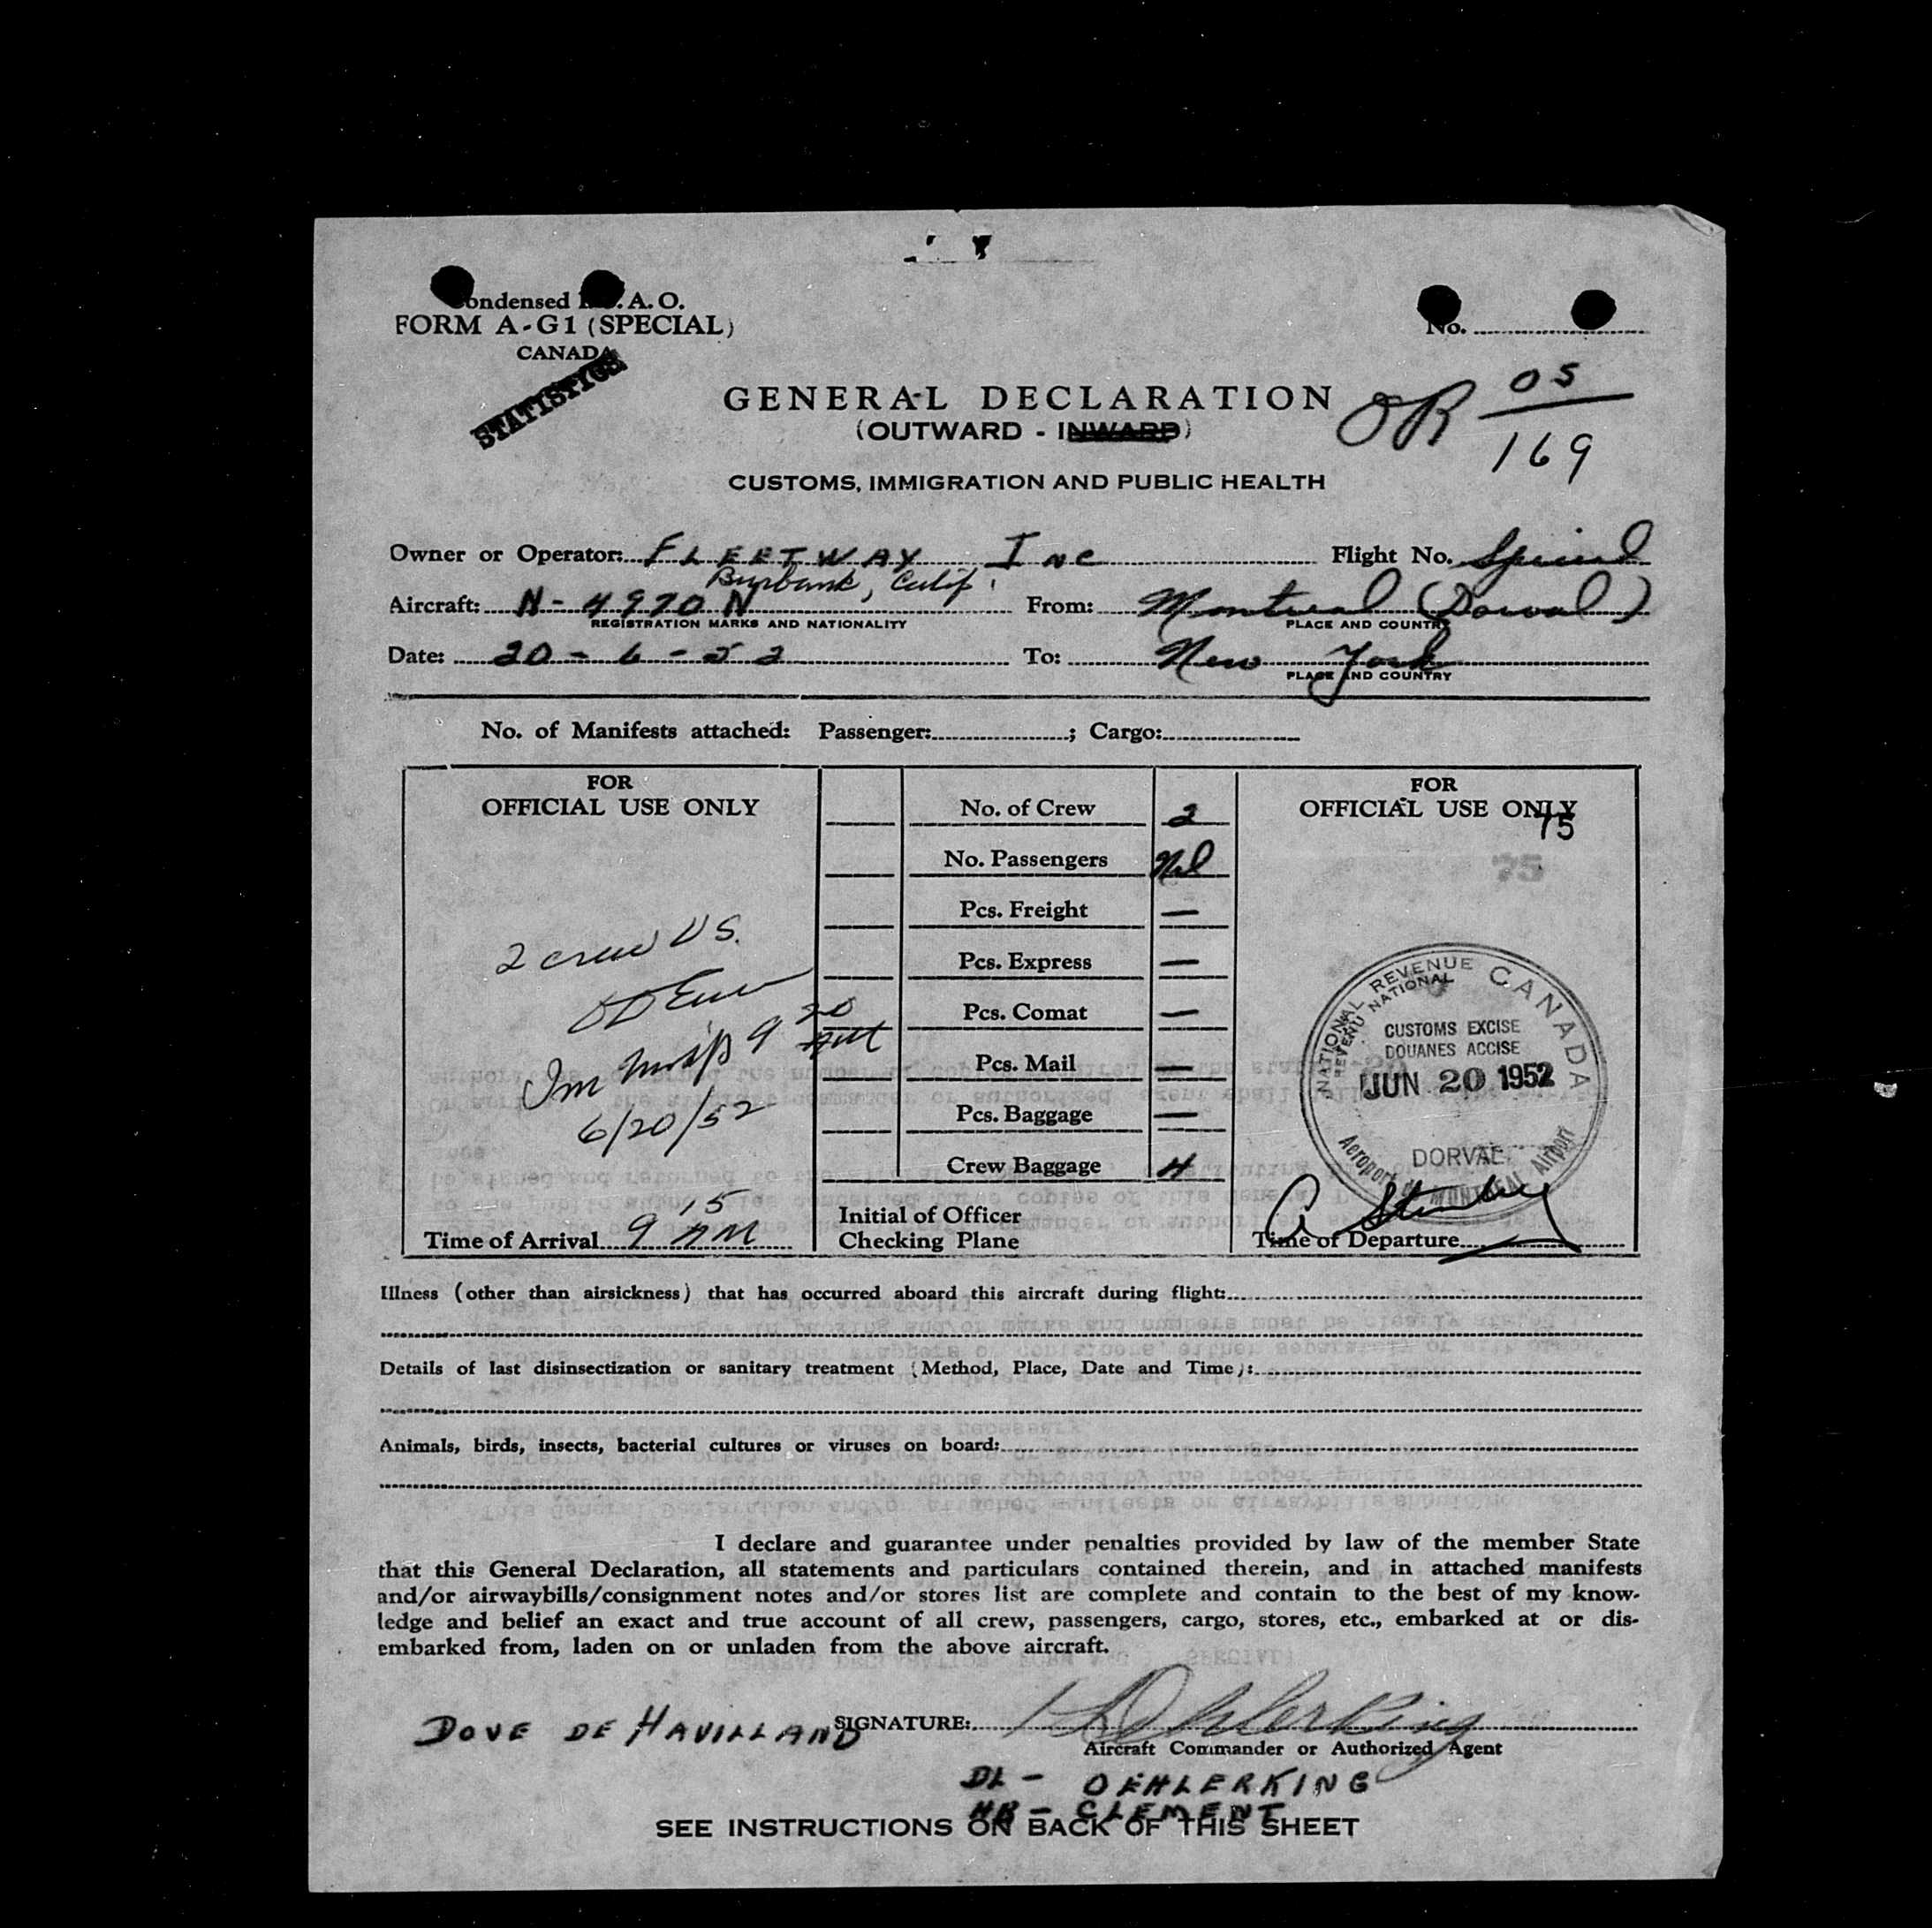 Condensed I.C.A.O.
FORM A-G1 (SPECIAL)
CANADA
STATISTICS
No.
GENERAL DECLARATION
(OUTWARD - INWARD)
OR 05
169
CUSTOMS, IMMIGRATION AND PUBLIC HEALTH
Owner or Operator: FLEETWAY INC Flight No. Special
Burbank, Calif.
Aircraft: N-4970N From: Montreal (Dorval)
REGISTRATION MARKS AND NATIONALITY PLACE AND COUNTRY
Date: 20-6-52 To: New York
PLACE AND COUNTRY
No. of Manifests attached: Passenger: ; Cargo:
FOR
OFFICIAL USE ONLY
2 crew US.
9 20
6/20/52
Time of Arrival 9 15 AM
No. of Crew 2
No. Passengers Nil
Pcs. Freight —
Pcs. Express —
Pcs. Comat —
Pcs. Mail —
Pcs. Baggage —
Crew Baggage 4
Initial of Officer
Checking Plane
FOR
OFFICIAL USE ONLY
75
75
NATIONAL REVENUE CANADA
REVENU NATIONAL
CUSTOMS EXCISE
DOUANES ACCISE
JUN 20 1952
DORVAL
Aeroport de MONTREAL Airport
Time of Departure
Illness (other than airsickness) that has occurred aboard this aircraft during flight:
Details of last disinsectization or sanitary treatment (Method, Place, Date and Time):
Animals, birds, insects, bacterial cultures or viruses on board:
I declare and guarantee under penalties provided by law of the member State
that this General Declaration, all statements and particulars contained therein, and in attached manifests
and/or airwaybills/consignment notes and/or stores list are complete and contain to the best of my know-
ledge and belief an exact and true account of all crew, passengers, cargo, stores, etc., embarked at or dis-
embarked from, laden on or unladen from the above aircraft.
DOVE DE HAVILLAND SIGNATURE: DL Oehlerking
Aircraft Commander or Authorized Agent
DL - OEHLERKING
HR - CLEMENT
SEE INSTRUCTIONS ON BACK OF THIS SHEET